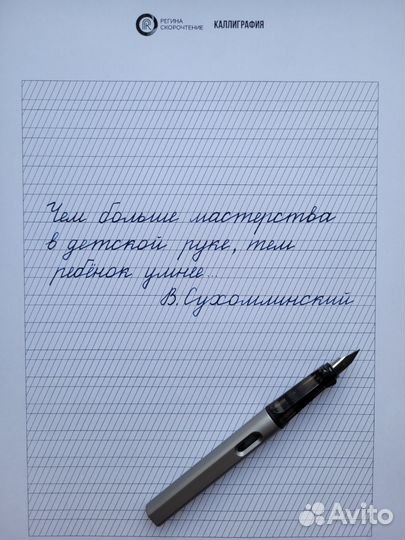 РЕГИНА
СКОРОЧТЕНИЕ
КАЛЛИГРАФИЯ
Чем больше мастерства
в детской руке, тем
ребёнок умнее...
В.Сухомлинский
Avito